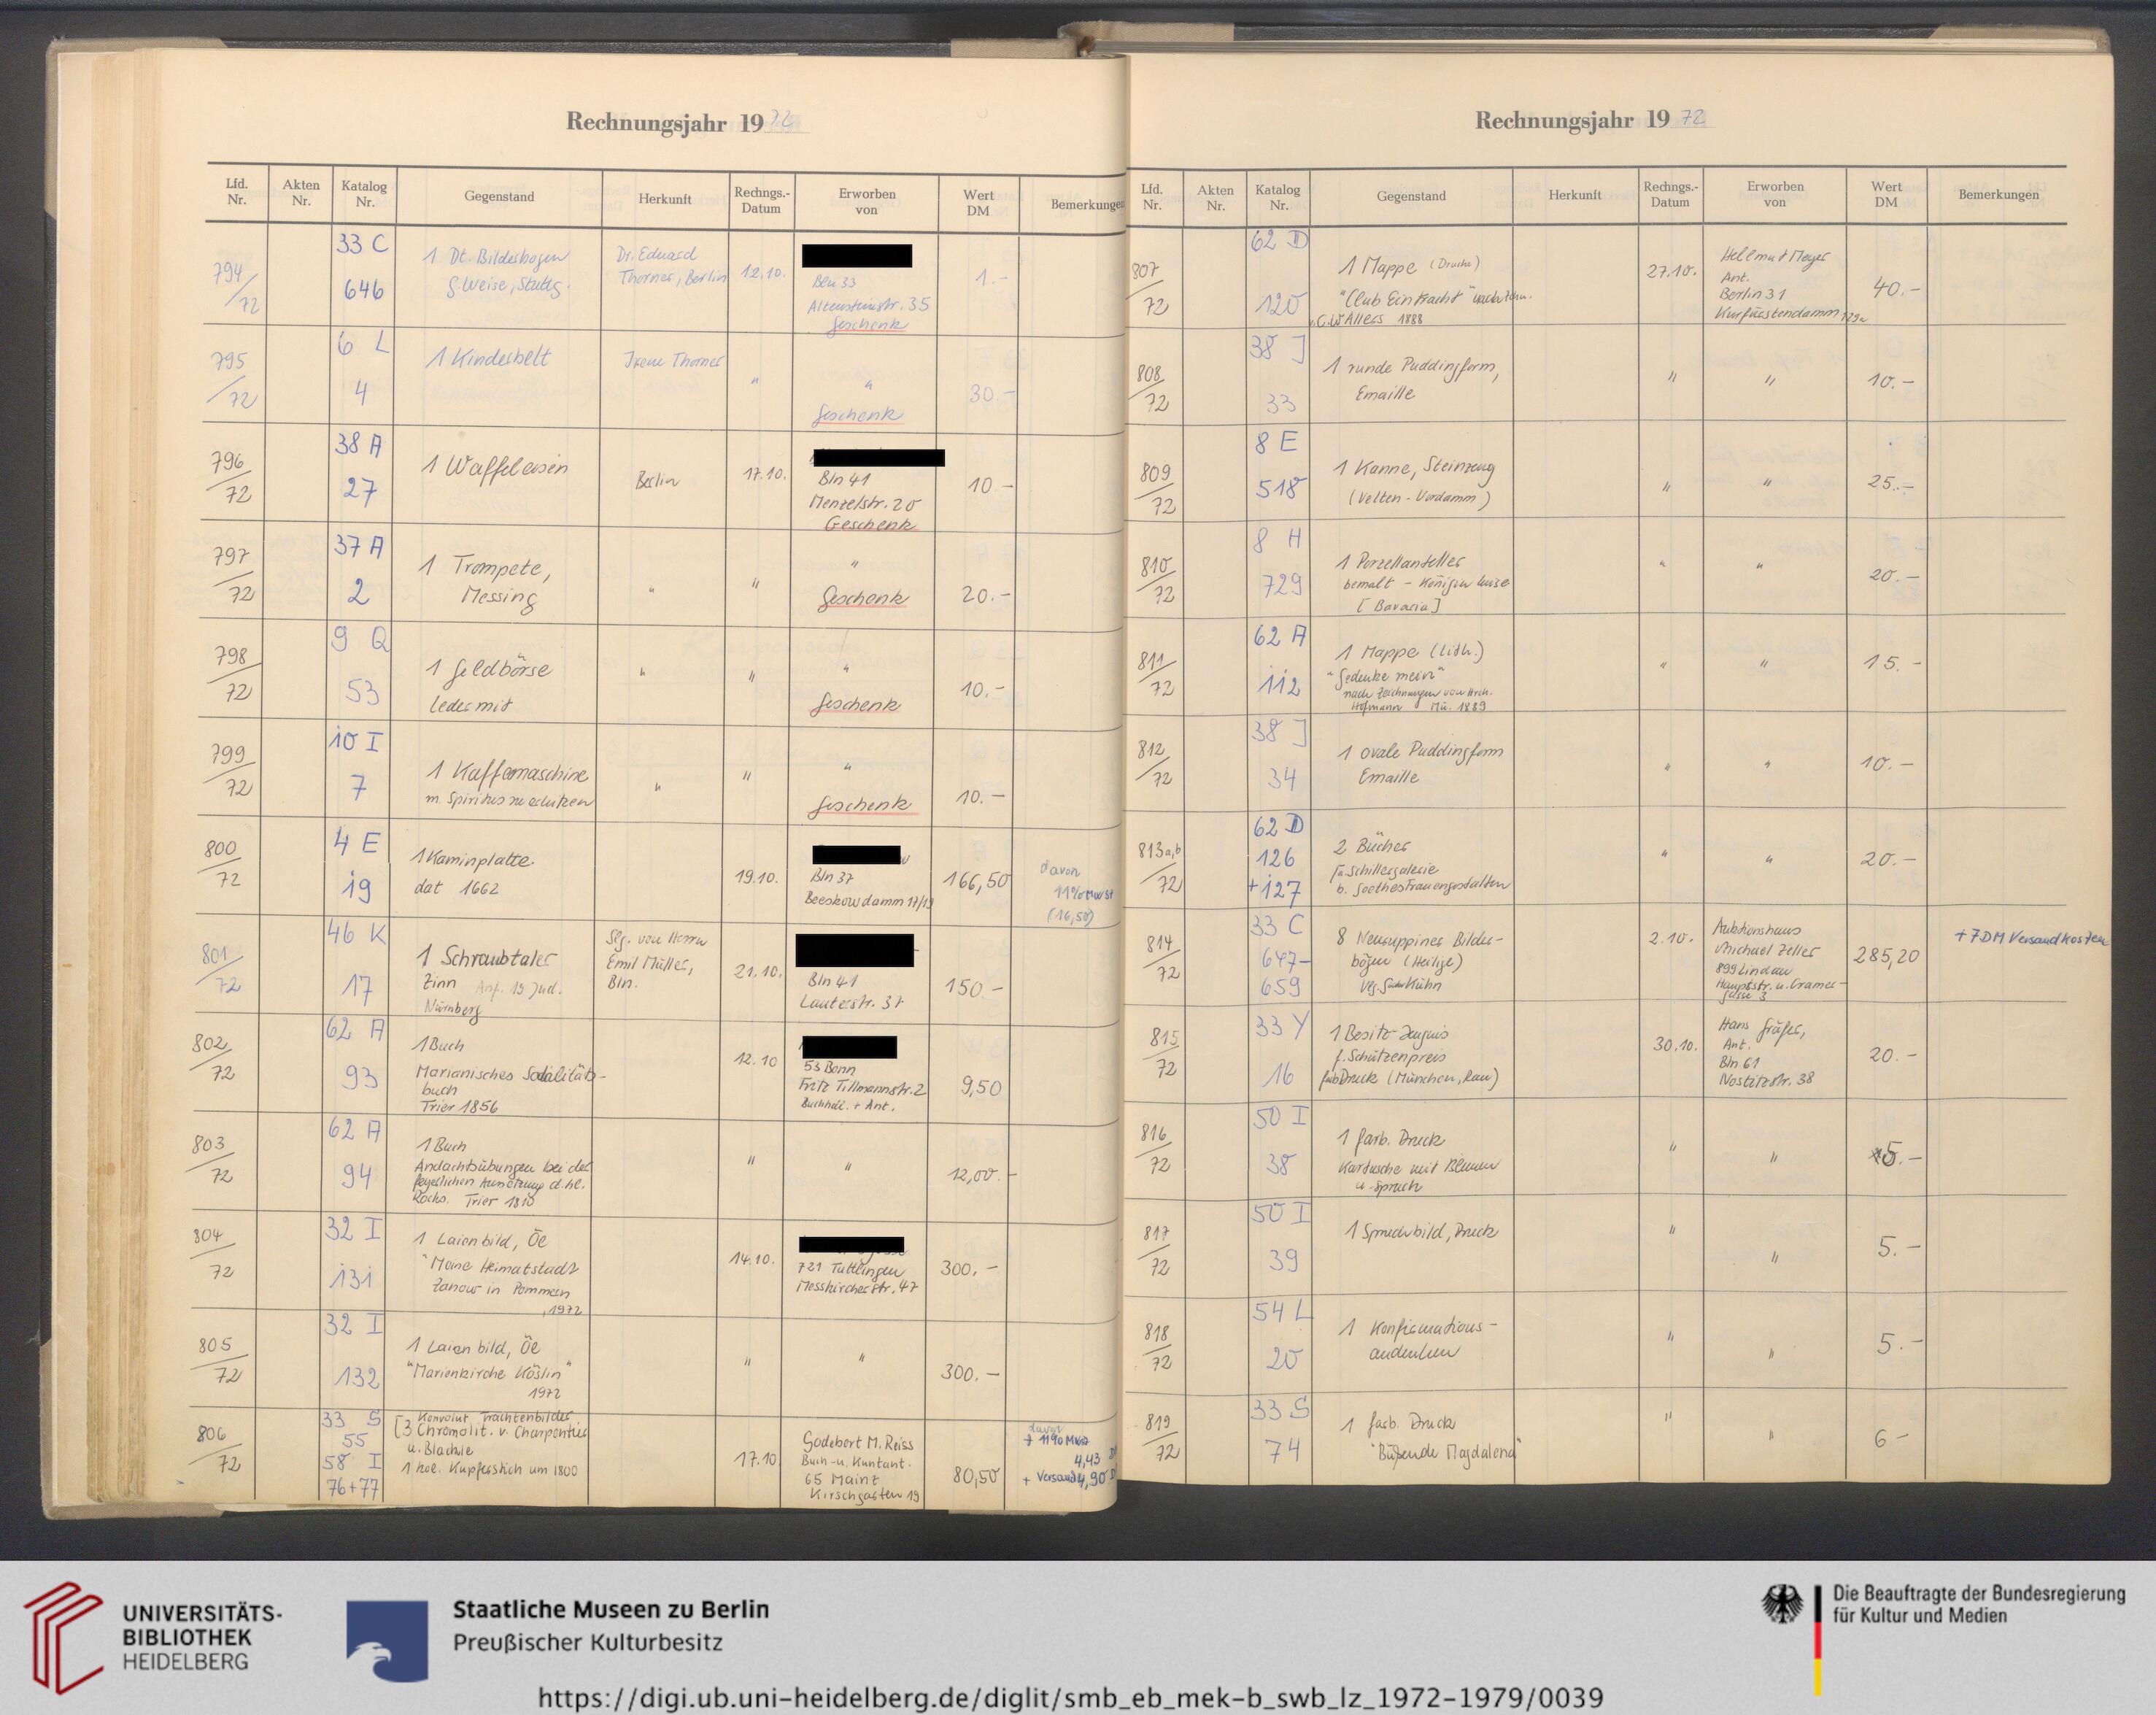 Rechnungsjahr 1972
Lfd. Nr.
Akten Nr.
Katalog Nr.
Gegenstand
Herkunft
Rechngs.-Datum
Erworben von
Wert DM
Bemerkungen
794/72
33 C
646
1 Dt. Bilderbogen
G. Weise, Stuttg.
Dr. Eduard
Thorner, Berlin
12.10.
Bln 33
Altensteinstr. 35
Geschenk
1.-
795/72
6 L
4
1 Kinderbett
Irene Thorner
"
"
Geschenk
30.-
796/72
38 A
27
1 Waffeleisen
Berlin
17.10.
Bln 41
Menzelstr. 20
Geschenk
10.-
797/72
37 A
2
1 Trompete,
Messing
"
"
"
Geschenk
20.-
798/72
9 Q
53
1 Geldbörse
Leder mit
"
"
"
Geschenk
10.-
799/72
10 I
7
1 Kaffemaschine
m. Spiritus
"
"
"
Geschenk
10.-
800/72
4 E
19
1 Kaminplatte
dat 1662
19.10.
Bln 37
Beeskowdamm 17/19
166,50
davon
11% MwSt
(16,50)
801/72
46 K
17
1 Schraubtaler
Zinn Anf. 19 Jhd.
Nürnberg
Slg. von Herrn
Emil Müller,
Bln.
21.10.
Bln 41
Lauterstr. 37
150.-
802/72
62 A
93
1 Buch
Marianisches Sodalitäts-
buch
Trier 1856
12.10
53 Bonn
Fritz Tillmannstr. 2
Buchhdl. + Ant.
9,50
803/72
62 A
94
1 Buch
Andachtsübungen bei der
feyerlichen Aussetzung d. hl.
Rocks. Trier 1810
"
"
12,00.-
804/72
32 I
131
1 Laienbild, Öl
"Meine Heimatstadt
Zanow in Pommern
, 1972
14.10.
721 Tuttlingen
Messkircherstr. 47
300.-
805/72
32 I
132
1 Laienbild, Öl
"Marienkirche Köslin"
1972
"
"
300.-
806/72
33 S
55
58 I
76+77
Konvolut Trachtenbilder
[3 Chromolit. v. Charpentier
u. Blachle
1 kol. Kupferstich um 1800
17.10
Godebert M. Reiss
Buch- u. Kunstant.
65 Mainz
Kirschgarten 19
80,50
davon
+ 11% MWSt
4,43 DM
+ Versand 4,90 D
Rechnungsjahr 1972
Lfd. Nr.
Akten Nr.
Katalog Nr.
Gegenstand
Herkunft
Rechngs.-Datum
Erworben von
Wert DM
Bemerkungen
807/72
62 D
120
1 Mappe (Drucke)
"Club Eintracht" nach Zchn.
v. C. W Allers 1888
27.10.
Hellmut Meyer
Ant.
Berlin 31
Kurfürstendamm 129a
40.-
808/72
38 J
33
1 runde Puddingform,
Emaille
"
"
10.-
809/72
8 E
518
1 Kanne, Steinzeug
(Velten-Vordamm)
"
"
25.-
810/72
8 H
729
1 Porzellanteller
bemalt - Königin Luise
[Bavaria]
"
"
20.-
811/72
62 A
112
1 Mappe (Lith.)
"Gedenke mein"
nach Zeichnungen von Hrch.
Hofmann Mü. 1889
"
"
15.-
812/72
38 J
34
1 ovale Puddingform
Emaille
"
"
10.-
813a,b/72
62 D
126
+127
2 Bücher
a. Schillergalerie
b. Goethes Frauengestalten
"
"
20.-
814/72
33 C
647-
659
8 Neuruppiner Bilder-
bögen (Heilige)
Vlg. Kühn
2.10.
Auktionshaus
Michael Zeller
899 Lindau
Hauptstr. u. Cramer-
gasse 3
285,20
+ 7 DM Versandkosten
815/72
33 Y
16
1 Besitz-Zeugnis
f. Schützenpreis
farbDruck (München, Rau)
30.10.
Hans Gräfer,
Ant.
Bln 61
Nostitzstr. 38
20.-
816/72
50 I
38
1 farb. Druck
Kartusche mit Blumen
u. Spruch
"
"
5.-
817/72
50 I
39
1 Spruchbild, Druck
"
"
5.-
818/72
54 L
20
1 Konfirmations-
andenken
"
"
5.-
819/72
33 S
74
1 farb. Druck
"Büßende Magdalena"
"
"
6-
UNIVERSITÄTS-
BIBLIOTHEK
HEIDELBERG
Staatliche Museen zu Berlin
Preußischer Kulturbesitz
Die Beauftragte der Bundesregierung
für Kultur und Medien
https://digi.ub.uni-heidelberg.de/diglit/smb_eb_mek-b_swb_lz_1972-1979/0039